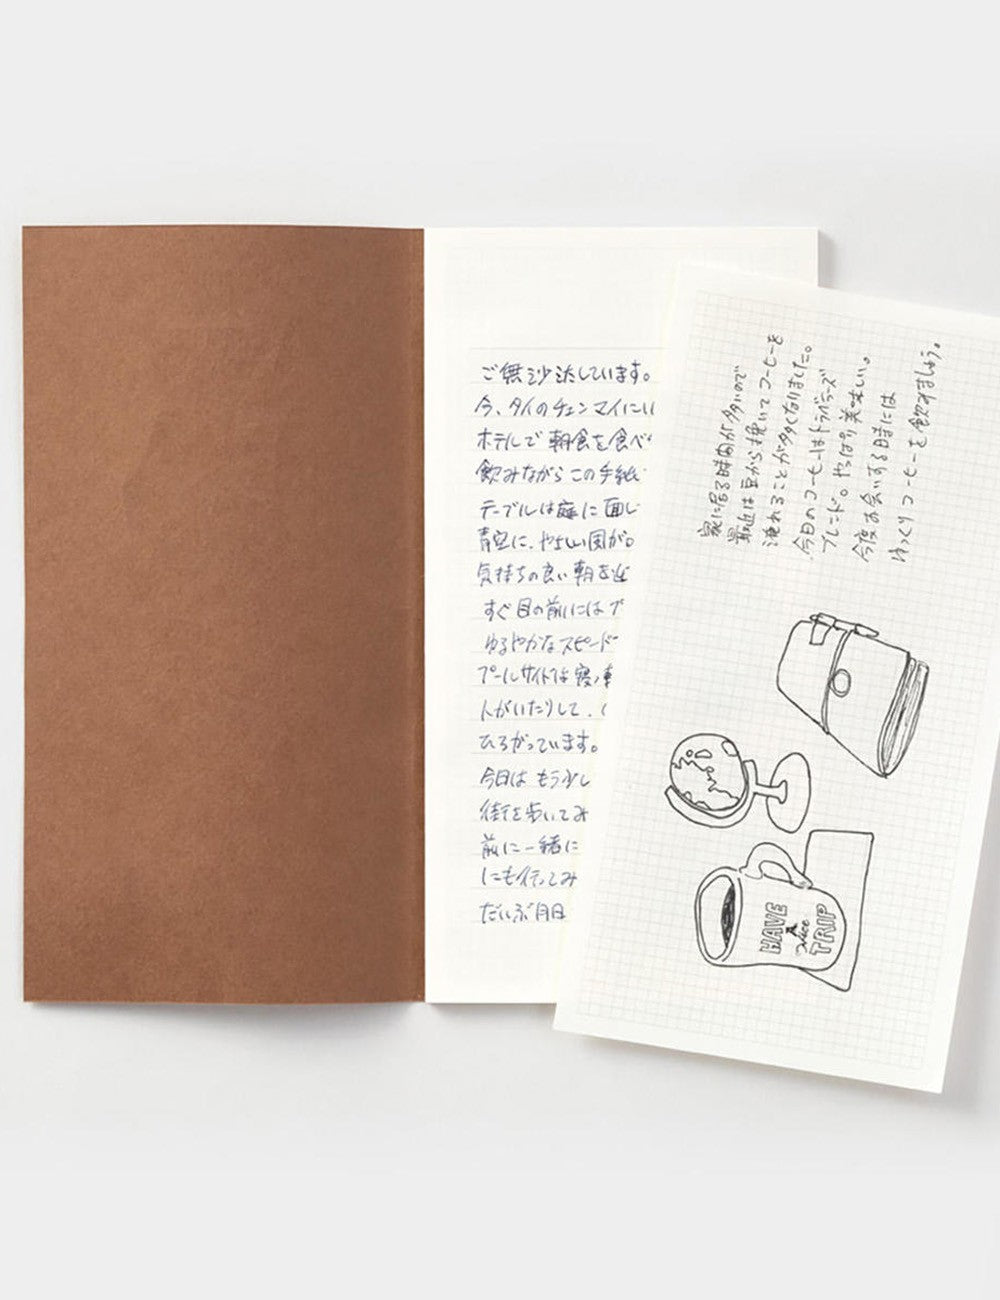 ご無沙汰しています。
今、タイのチェンマイにい
ホテルで朝食を食べ
飲みながらこの手紙
テーブルは庭に面し
青空に、やさしい風が
気持ちの良い朝を
すぐ目の前にはプ
ゆるやかなスピード
プールサイドは寝
人がいたりして、
ひろがっています。
今日はもう少し
街を歩いてみ
前に一緒に
にも行ってみ
だいぶ月日
家に居る時間が多いので
最近は豆から挽いてコーヒーを
淹れることが多くなりました。
今日のコーヒーはトラベラーズ
ブレンド。やっぱり美味しい。
今度お会いする時には
ゆっくりコーヒーを飲みましょう。
HAVE
A
Nice
TRIP